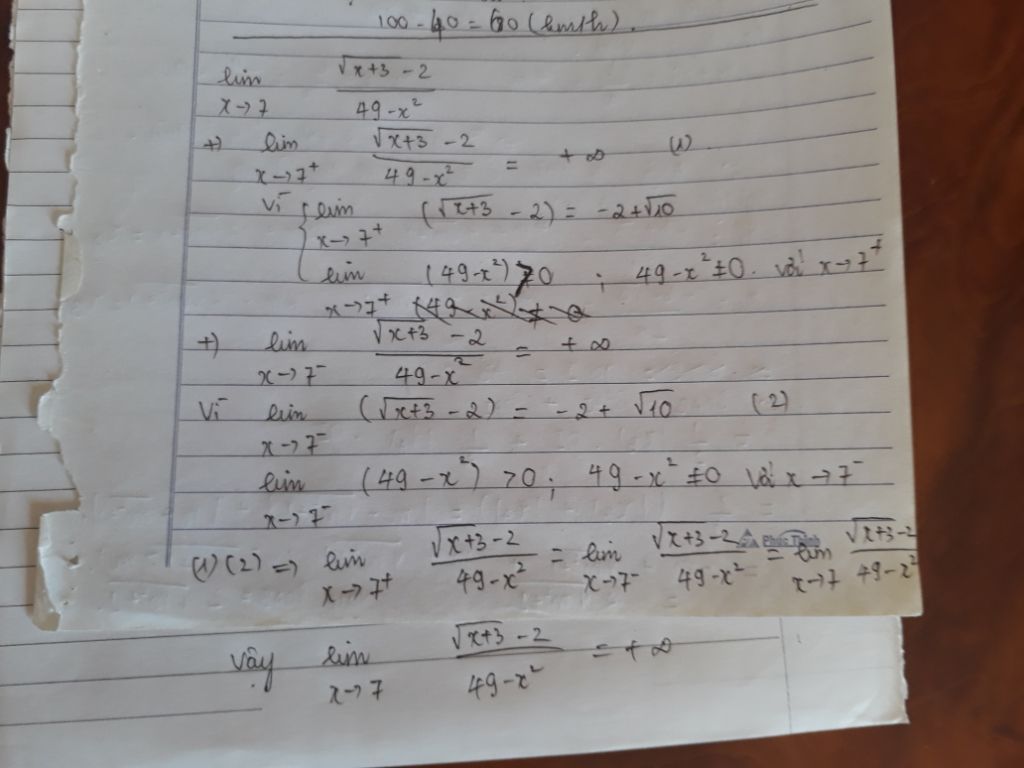 100 - 40 = 60 (km/h).
lim x→7 (√(x+3) - 2)/(49 - x²)
+) lim x→7⁺ (√(x+3) - 2)/(49 - x²) = +∞ (1)
Vì { lim x→7⁺ (√(x+3) - 2) = -2 + √10
lim x→7⁺ (49 - x²) > 0 ; 49 - x² ≠ 0 với x→7⁺
+) lim x→7⁻ (√(x+3) - 2)/(49 - x²) = +∞
Vì lim x→7⁻ (√(x+3) - 2) = -2 + √10 (2)
lim x→7⁻ (49 - x²) > 0 ; 49 - x² ≠ 0 với x→7⁻
(1) (2) => lim x→7⁺ (√(x+3) - 2)/(49 - x²) = lim x→7⁻ (√(x+3) - 2)/(49 - x²) = lim x→7 (√(x+3) - 2)/(49 - x²)
Vậy lim x→7 (√(x+3) - 2)/(49 - x²) = +∞